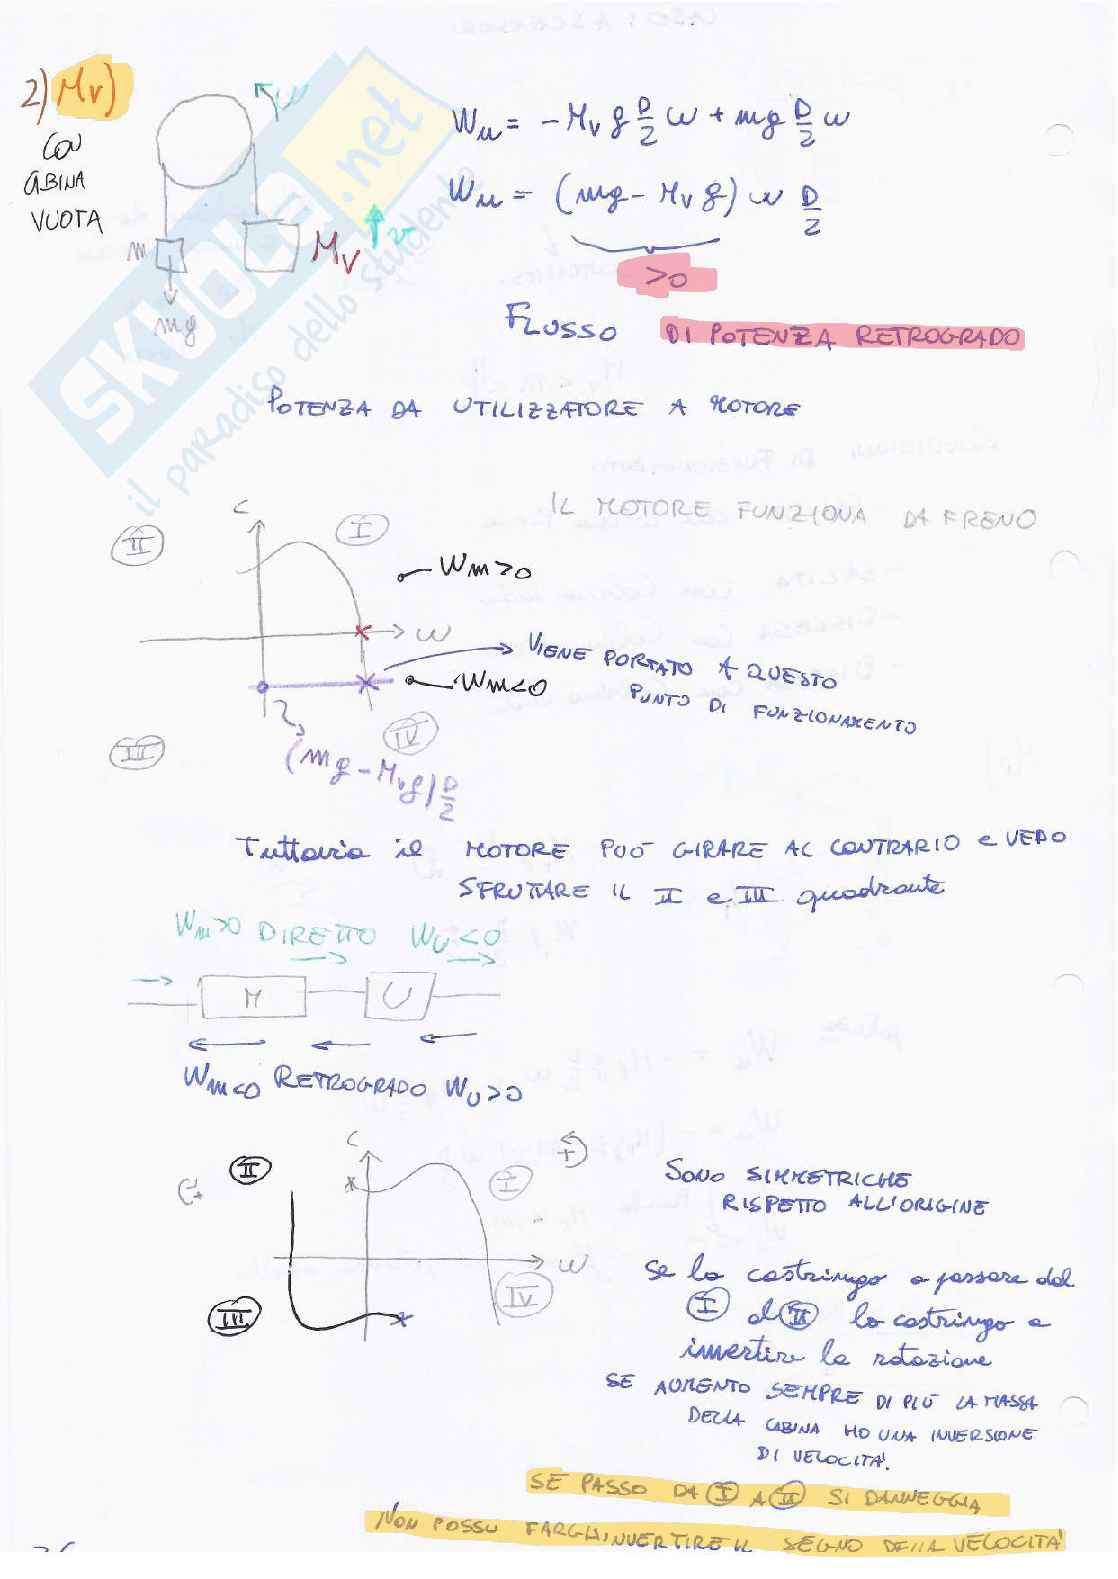 2) Mv)
CON
CABINA
VUOTA
ω
m
mg
Mv
v
Wu = - Mv g D/2 ω + mg D/2 ω
Wu = (mg - Mv g) ω D/2
>0
FLUSSO DI POTENZA RETROGRADO
POTENZA DA UTILIZZATORE A MOTORE
IL MOTORE FUNZIONA DA FRENO
SKUOLA.net
il paradiso dello studente
C
II
I
Wm>0
ω
VIENE PORTATO A QUESTO
PUNTO DI FUNZIONAMENTO
Wm<0
III
IV
(mg - Mv g) D/2
Tuttavia il MOTORE PUÒ GIRARE AL CONTRARIO e VEDO
SFRUTTARE IL II e III quadrante
Wm>0 DIRETTO Wu<0
M
U
Wm<0 RETROGRADO Wu>0
C
+
+
II
I
ω
III
IV
SONO SIMMETRICHE
RISPETTO ALL'ORIGINE
se lo costringo a passare dal
I al II lo costringo a
invertire la rotazione
SE AUMENTO SEMPRE DI PIÙ LA MASSA
DELLA CABINA HO UNA INVERSIONE
DI VELOCITA'.
SE PASSO DA I A II SI DANNEGGIA
NON POSSO FARGLI INVERTIRE IL SEGNO DELLA VELOCITA'